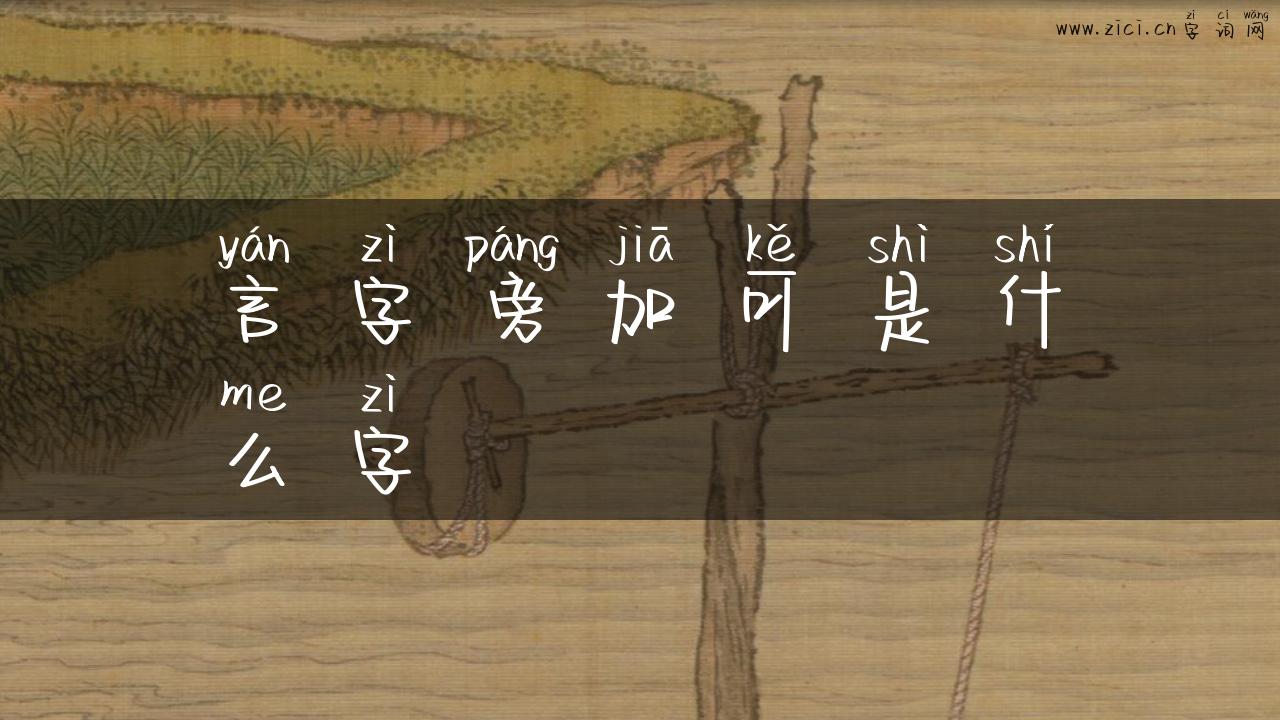 zì cí wǎng
www.zici.cn 字 词 网
yán zì páng jiā kě shì shí
言 字 旁 加 可 是 什
me zì
么 字